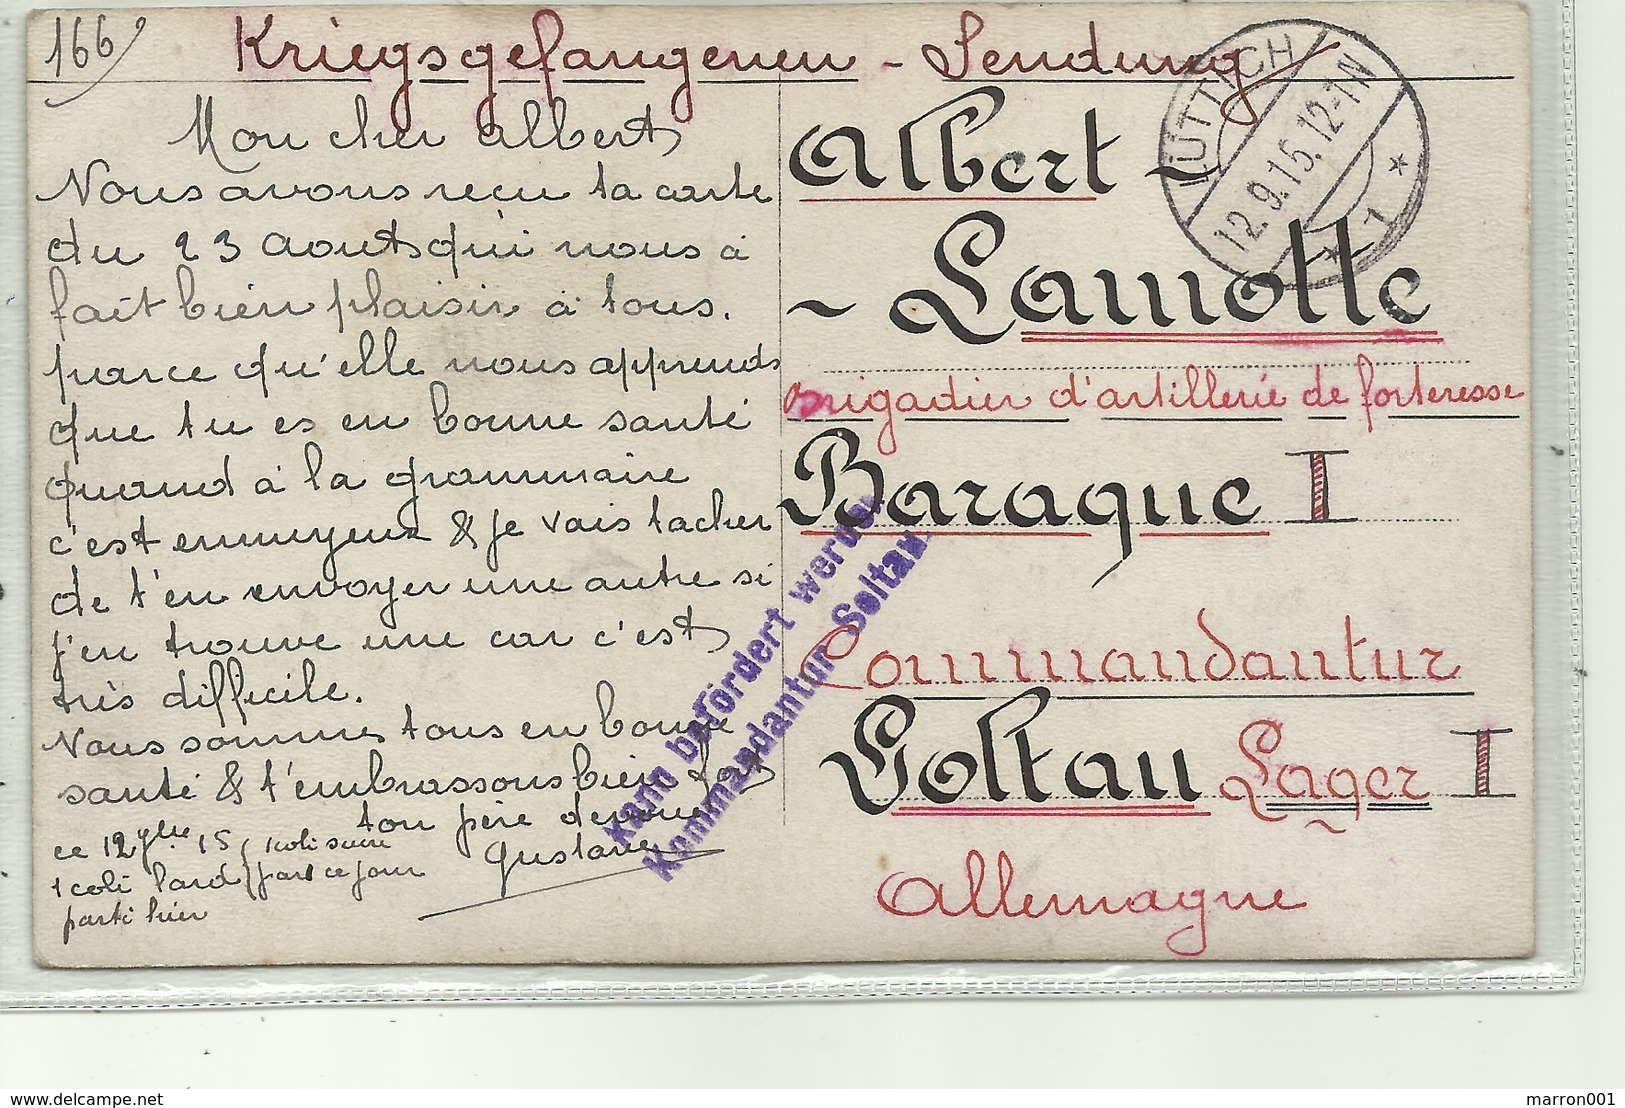 166
Kriegsgefangenen - Sendung
Mon cher Albert
Nous avons reçu ta carte
du 23 Aout qui nous à
fait bien plaisir à tous.
parce qu'elle nous apprends
que tu es en bonne santé
quand à la grammaire
c'est ennuyeux & je vais tacher
de t'en envoyer une autre si
j'en trouve une car c'est
très difficile.
Nous sommes tous en bonne
santé & t'embrassons bien fort
ton père dévoué
Gustave
ce 12 7bre 15
1 coli lard
parti hier
1 coli sucre
part ce jour
LÜTTICH
12.9.15.12-1N
* 1 *
Albert
- Lamotte
Brigadier d'artillerie de forteresse
Baraque I
Commandantur
Soltau Lager I
Allemagne
Kann befördert werden
Kommandantur Soltau.
marron001